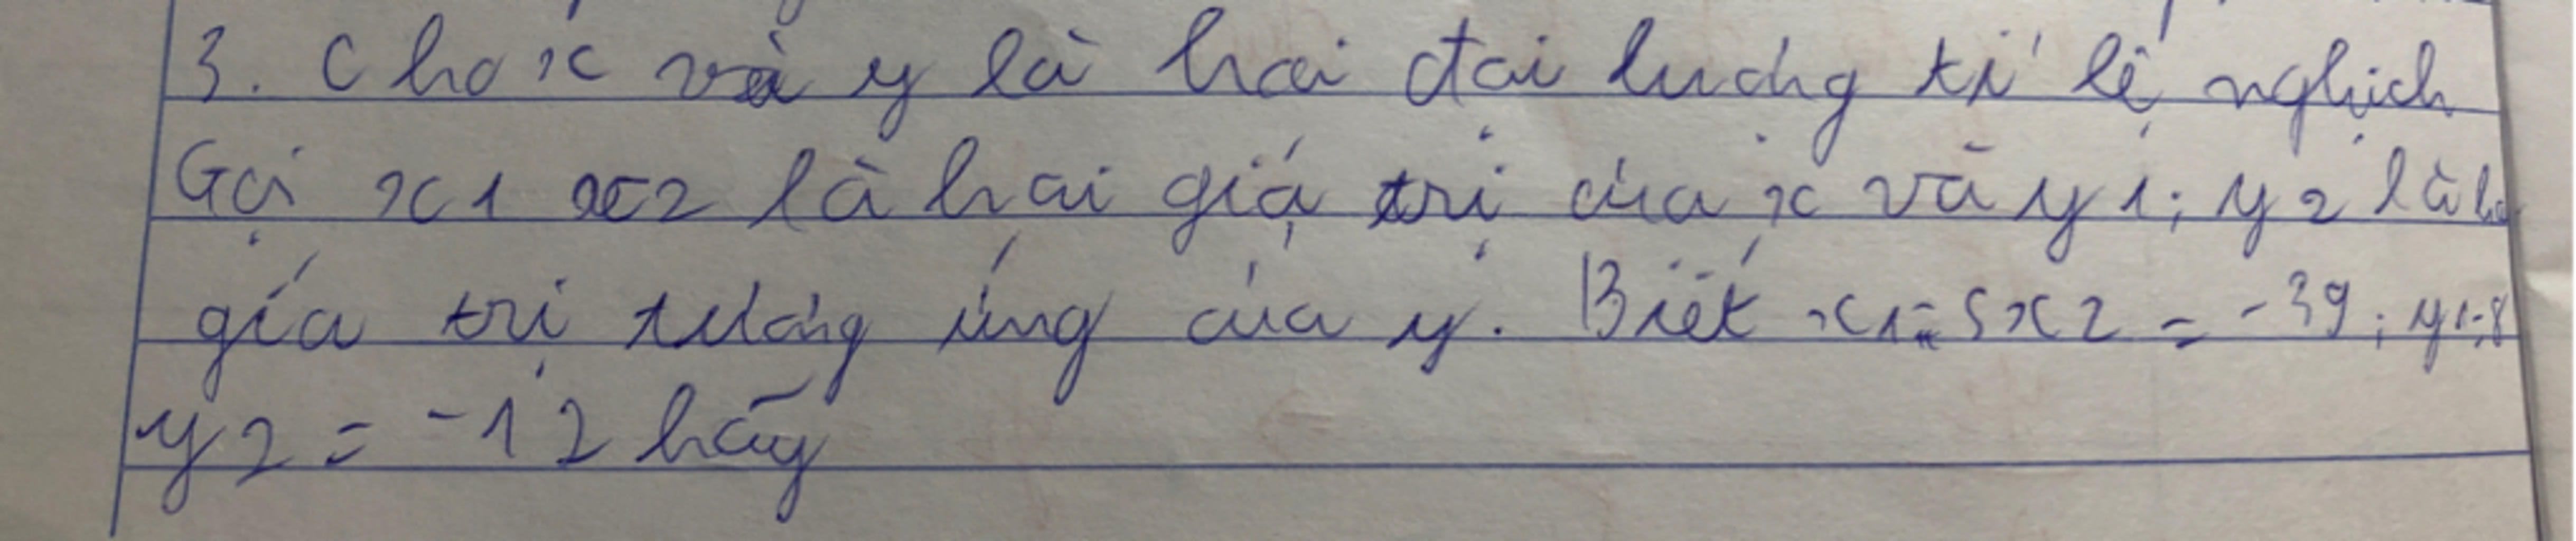 3. Cho x và y là hai đại lượng tỉ lệ nghịch
Gọi x1 x2 là hai giá trị của x và y1; y2 là
giá trị tương ứng của y. Biết x1=5x2 = -39; y1=8
y2 = -12 hãy